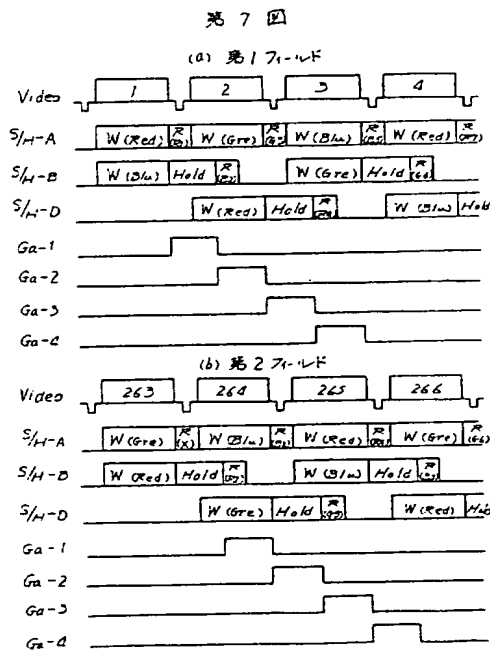 第 7 図
(a) 第1フィールド
Video 1 2 3 4
S/H-A W(Red) W(Gre) W(Blu) W(Red)
S/H-B W(Blu) Hold W(Gre) Hold
S/H-D W(Red) Hold W(Blu) Hold
Ga-1
Ga-2
Ga-3
Ga-4
(b) 第2フィールド
Video 263 264 265 266
S/H-A W(Gre) R(X) W(Blu) W(Red) W(Gre)
S/H-B W(Red) Hold W(Blu) Hold
S/H-D W(Gre) Hold W(Red) Hold
Ga-1
Ga-2
Ga-3
Ga-4